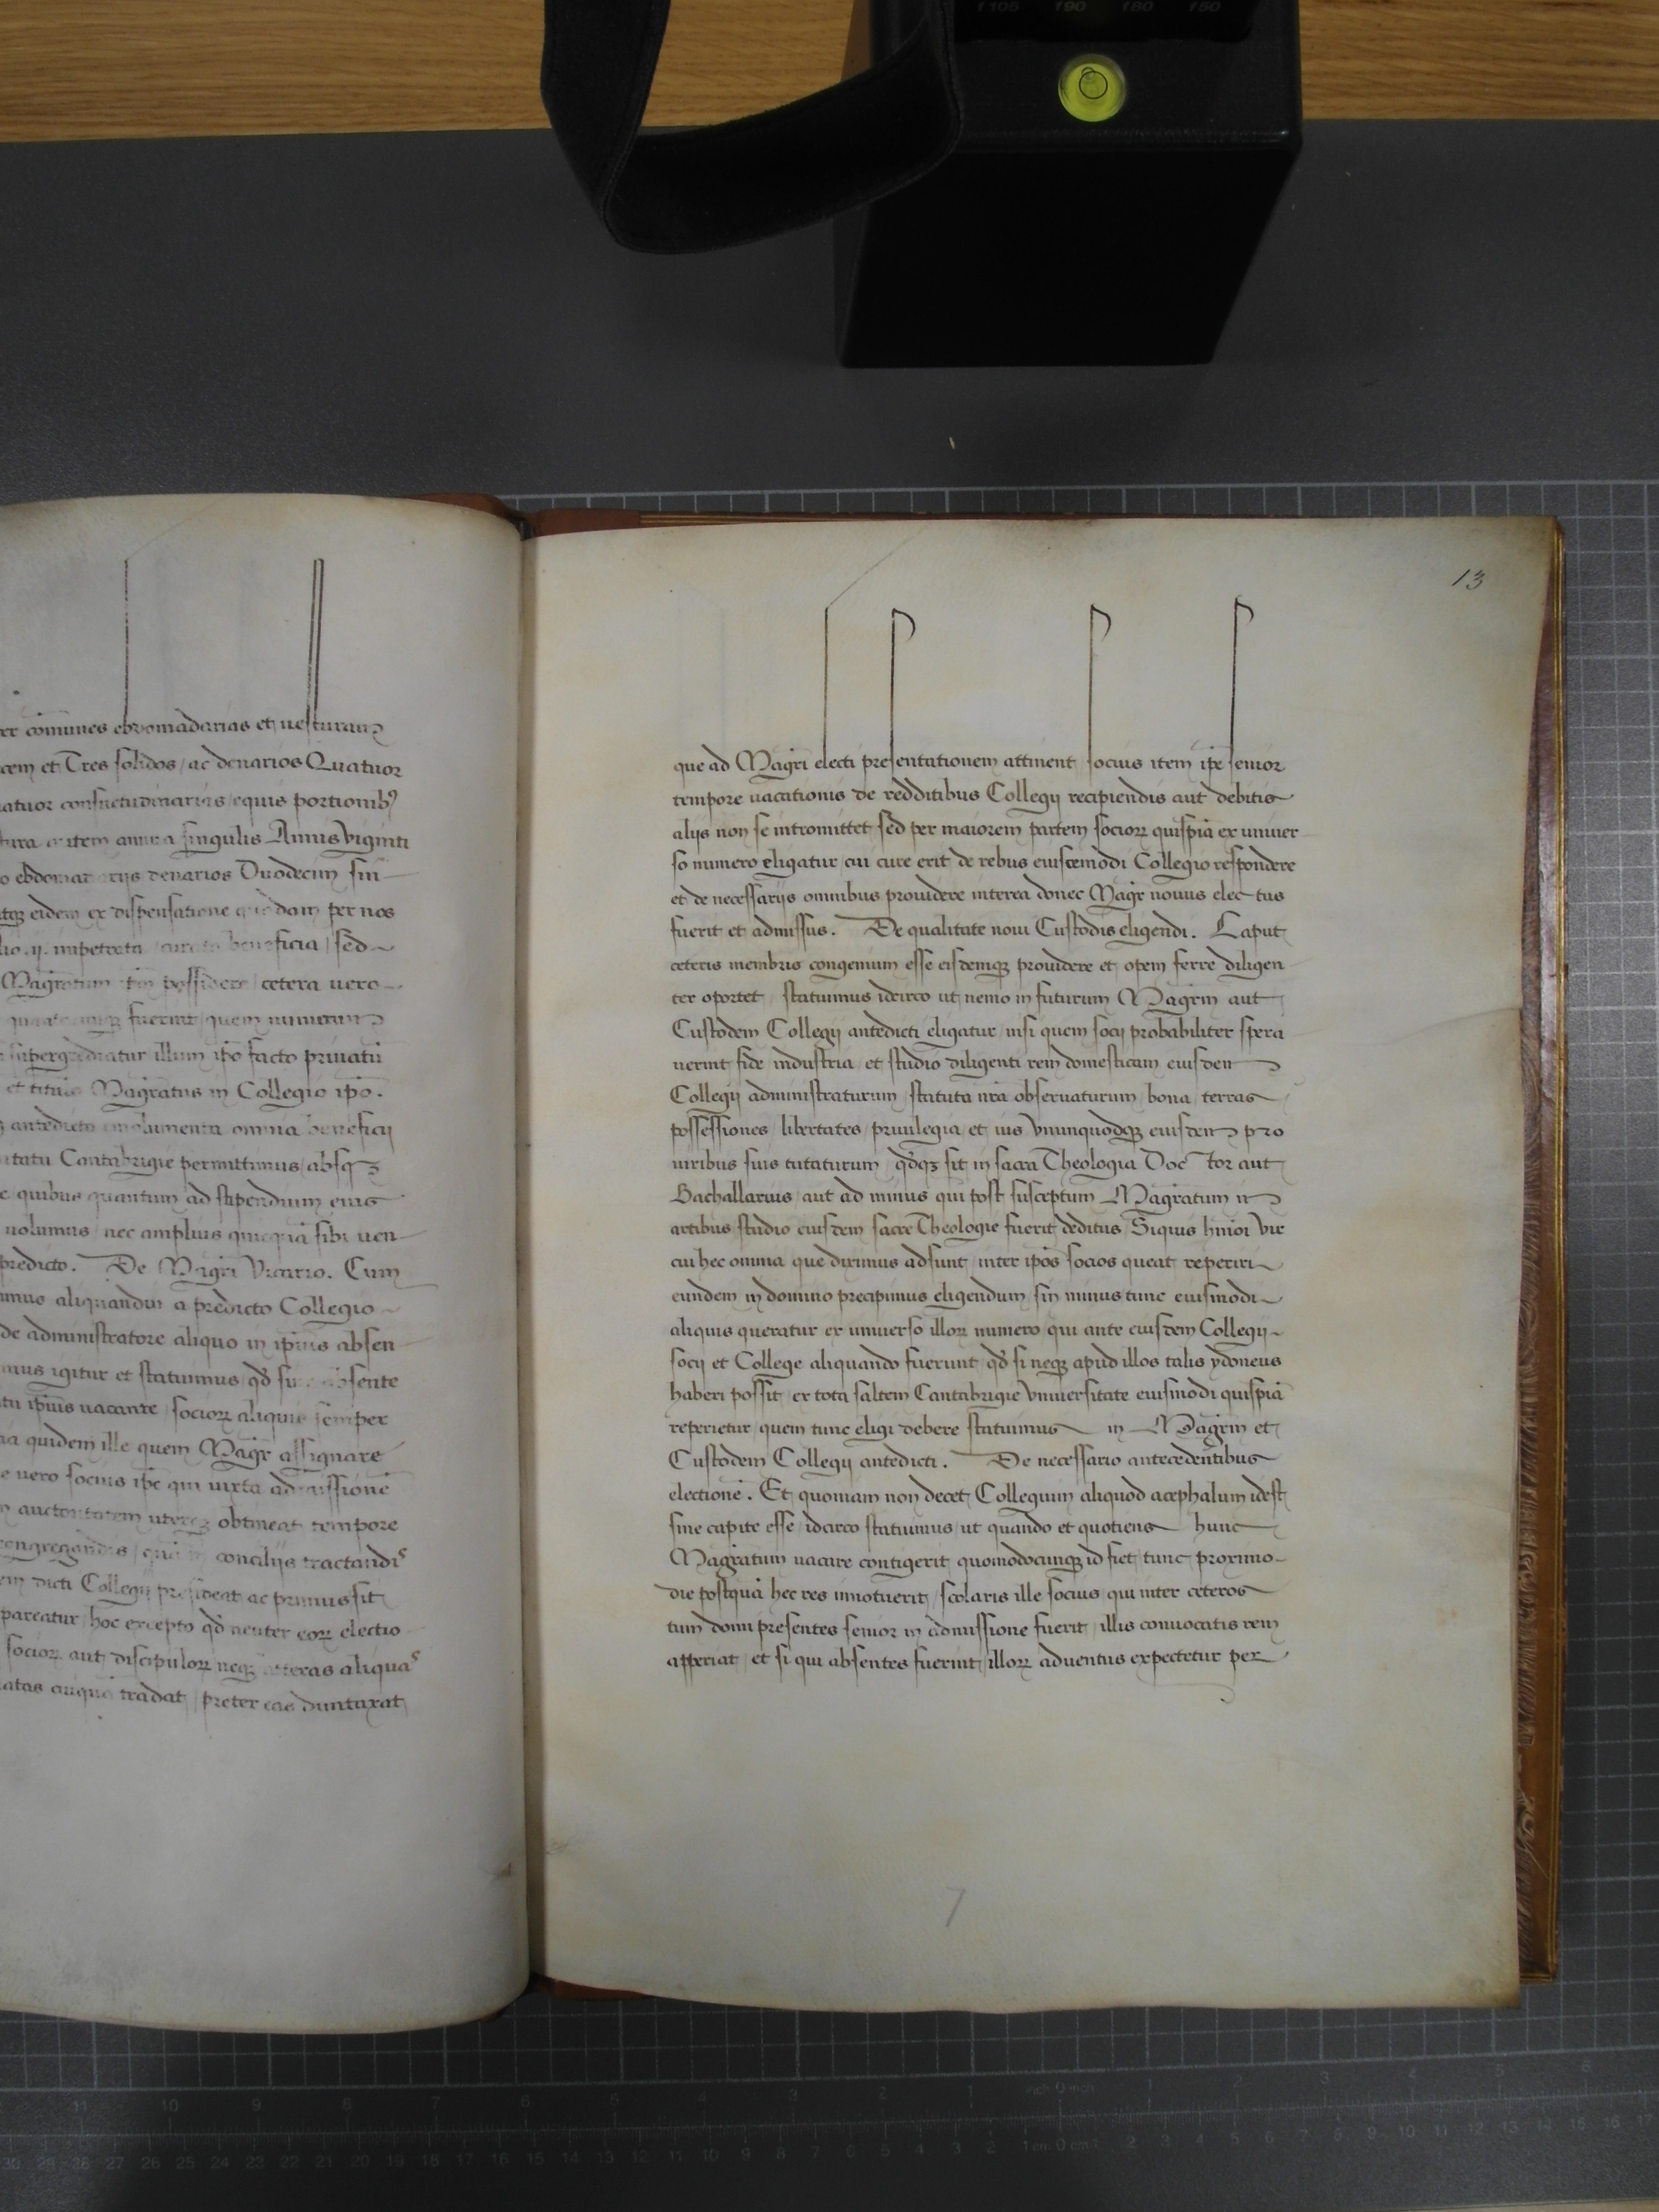 f105 f90 f80 f50
cōmunes ebdomadarias et uesturam
et Tres solidos / ac denarios Quatuor
consuetudinarijs equis portionib9
singulis Annis Viginti
denarios Duodecim sin
eidem ex dispensatione per nos
impetrata beneficia / sed
possidere / cetera uero
fuerint quem numerum
illum ipō facto priuatū
Magratus in Collegio ipō.
antedicto emolumenta omnia beneficij
Cantabrigie permittimus / absqȝ
quibus quantum ad stipendium eius
uolumus / nec amplius sibi uen
predicto. De Magri Vicario. Cum
aliquandiu a predicto Collegio
de administratore aliquo in ipius absen
igitur et statuimus / qd
ipius uacante / socioꝝ aliquis semper
quidem ille quem Magr assignare
uero socius ipē qui iuxta admissionē
obtineat tempore
concilijs tractandis
dicti Collegij presideat ac primus sit
pareatur / hoc excepto qd neuter eoꝝ electio
socioꝝ aut discipuloꝝ neqȝ aliquas
tradat / preter eas duntaxat
13
que ad Magri electi presentationem attinent / socius item ipē senior
tempore uacationis de redditibus Collegij recipiendis aut debitis
alijs non se intromittet sed per maiorem partem socioꝝ quispiā ex uniuer
so numero eligatur / cui cure erit de rebus eiuscemodi Collegio respondere
et de necessarijs omnibus prouidere interea donec Magr nouus elec tus
fuerit et admissus. De qualitate noui Custodis eligendi. Caput
ceteris membris congenium esse eisdemqȝ prouidere et opem ferre diligen
ter oportet / statuimus idcirco ut nemo in futurum Magrm aut
Custodem Collegij antedicti eligatur / nisi quem socij probabiliter spera
uerint fide industria / et studio diligenti rem domesticam eiusdem
Collegij administraturum / statuta nrā obseruaturum / bona / terras
possessiones / libertates / priuilegia / et ius Vnumquodqȝ eiusdem pro
uiribus suis tutaturum / qdqȝ sit in sacra Theologia Doc tor aut
Bachallarius / aut ad minus qui post susceptum Magratum in
artibus studio eiusdem sacre Theologie fuerit deditus / Siquis hmōi Vir
cui hec omnia que diximus adsunt / inter ipōs socios queat reperiri
eundem in domino precipimus eligendum / sin minus tunc eiusmodi
aliquis queratur ex uniuerso illoꝝ numero qui ante eiusdem Collegij
socij et College aliquando fuerunt / qd si neqȝ apud illos talis ydoneus
haberi possit / ex tota saltem Cantabrigie Vniuersitate eiusmodi quispiā
reperietur / quem tunc eligi debere statuimus in Magrm et
Custodem Collegij antedicti. De necessario antecedentibus
electionē. Et quoniam non decet Collegium aliquod acephalum idest
sine capite esse / idcirco statuimus / ut quando et quotiens hunc
Magratum uacare contigerit quomodocunqȝ id fiet / tunc proximo
die postquā hec res innotuerit / scolaris ille socius qui inter ceteros
tum domi presentes senior in admissione fuerit / illis conuocatis rem
apperiat / et si qui absentes fuerint / illoꝝ aduentus expectetur per
7
inch 0 inch
1 cm 0 cm 1